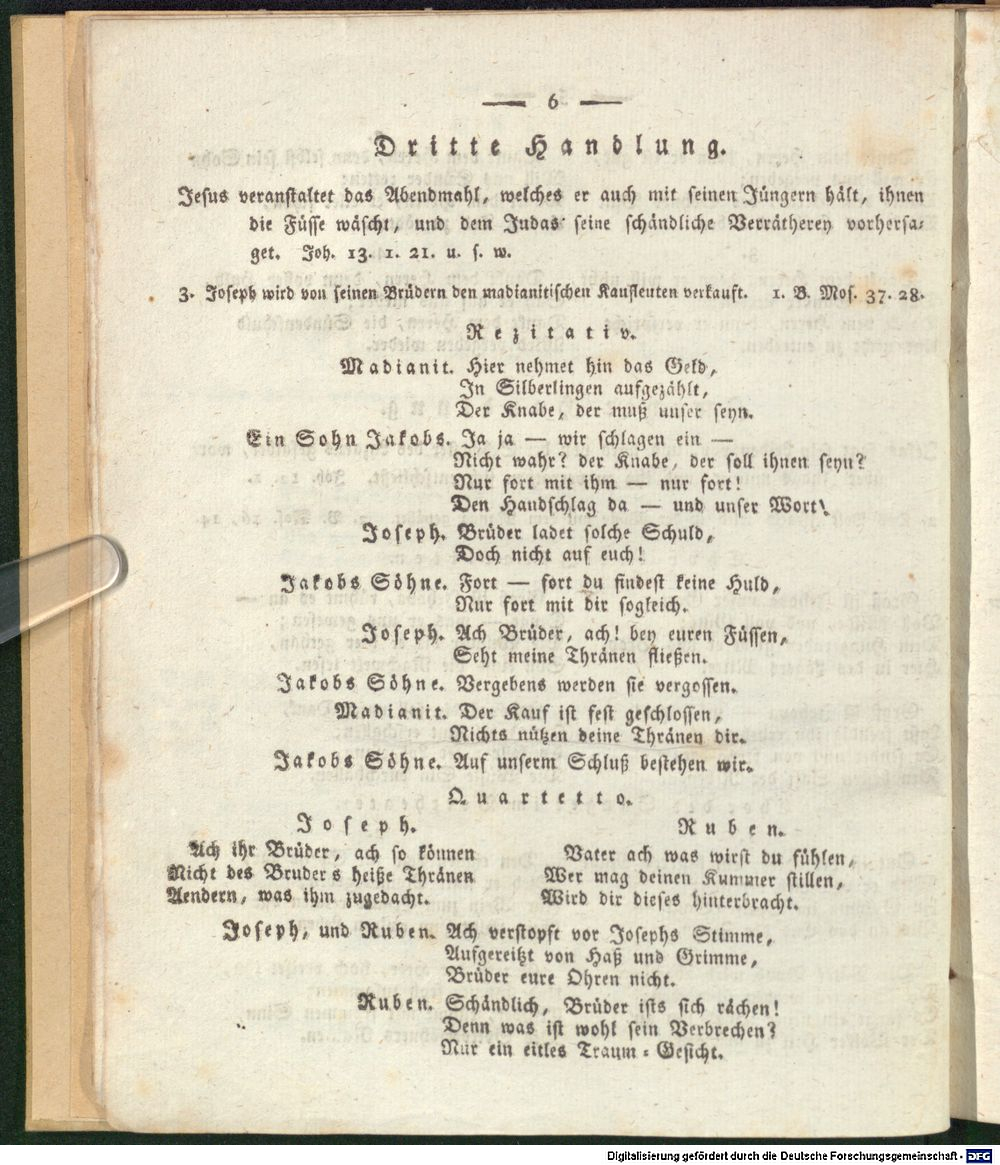 — 6 —
Dritte Handlung.
Jesus veranstaltet das Abendmahl, welches er auch mit seinen Jüngern hält, ihnen
die Füsse wäscht, und dem Judas seine schändliche Verrätherey vorhersa-
get. Joh. 13. 1. 21. u. s. w.
3. Joseph wird von seinen Brüdern den madianitischen Kaufleuten verkauft. 1. B. Mos. 37. 28.
Rezitativ.
Madianit. Hier nehmet hin das Geld,
In Silberlingen aufgezählt,
Der Knabe, der muß unser seyn.
Ein Sohn Jakobs. Ja ja — wir schlagen ein —
Nicht wahr? der Knabe, der soll ihnen seyn?
Nur fort mit ihm — nur fort!
Den Handschlag da — und unser Wort!
Joseph. Brüder ladet solche Schuld,
Doch nicht auf euch!
Jakobs Söhne. Fort — fort du findest keine Huld,
Nur fort mit dir sogleich.
Joseph. Ach Brüder, ach! bey euren Füssen,
Seht meine Thränen fließen.
Jakobs Söhne. Vergebens werden sie vergossen.
Madianit. Der Kauf ist fest geschlossen,
Nichts nützen deine Thränen dir.
Jakobs Söhne. Auf unserm Schluß bestehen wir.
Quartetto.
Joseph.
Ach ihr Brüder, ach so können
Nicht des Bruders heiße Thränen
Aendern, was ihm zugedacht.
Ruben.
Vater ach was wirst du fühlen,
Wer mag deinen Kummer stillen,
Wird dir dieses hinterbracht.
Joseph, und Ruben. Ach verstopft vor Josephs Stimme,
Aufgereitzt von Haß und Grimme,
Brüder eure Ohren nicht.
Ruben. Schändlich, Brüder ists sich rächen!
Denn was ist wohl sein Verbrechen?
Nur ein eitles Traum-Gesicht.
Digitalisierung gefördert durch die Deutsche Forschungsgemeinschaft - DFG